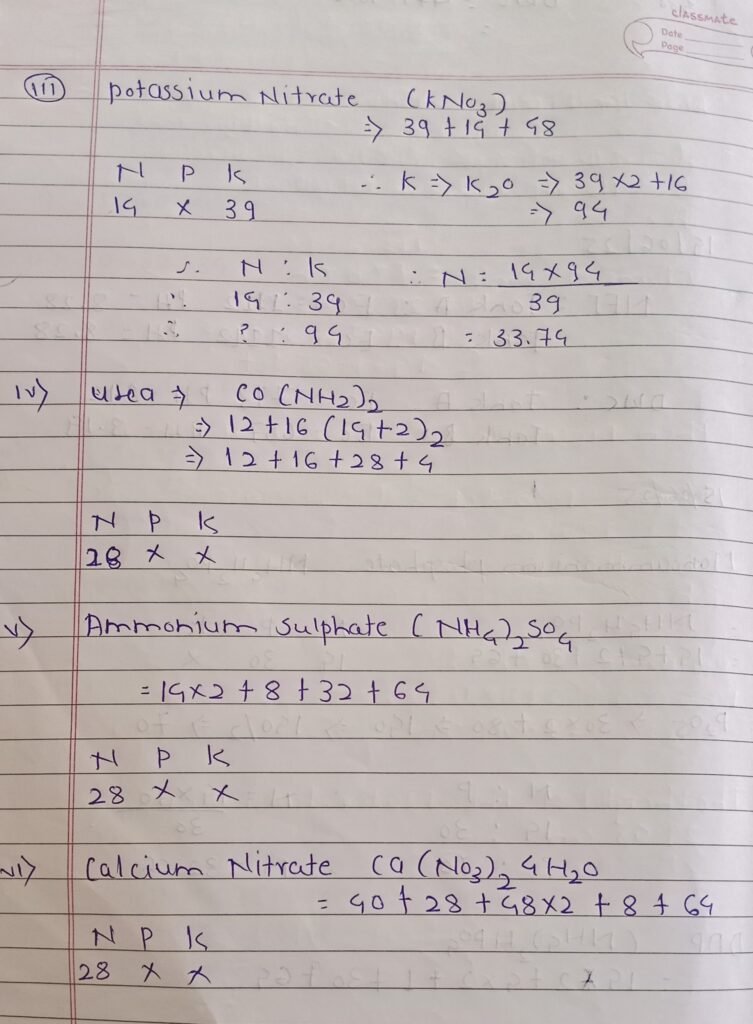 classmate
Date
Page
(iii) potassium Nitrate (KNO3)
=> 39 + 14 + 48
N P K ∴ K => K2O => 39 x2 +16
14 x 39 => 94
∴ N : K ∴ N = 14 x 94
∴ 14 : 39 39
∴ ? : 94 = 33.74
iv) urea => CO (NH2)2
=> 12 + 16 (14+2)2
=> 12 + 16 + 28 + 4
N P K
28 x x
v) Ammonium sulphate (NH4)2SO4
= 14x2 + 8 + 32 + 64
N P K
28 x x
vi) Calcium Nitrate Ca (NO3)2 4H2O
= 40 + 28 + 48x2 + 8 + 64
N P K
28 x x